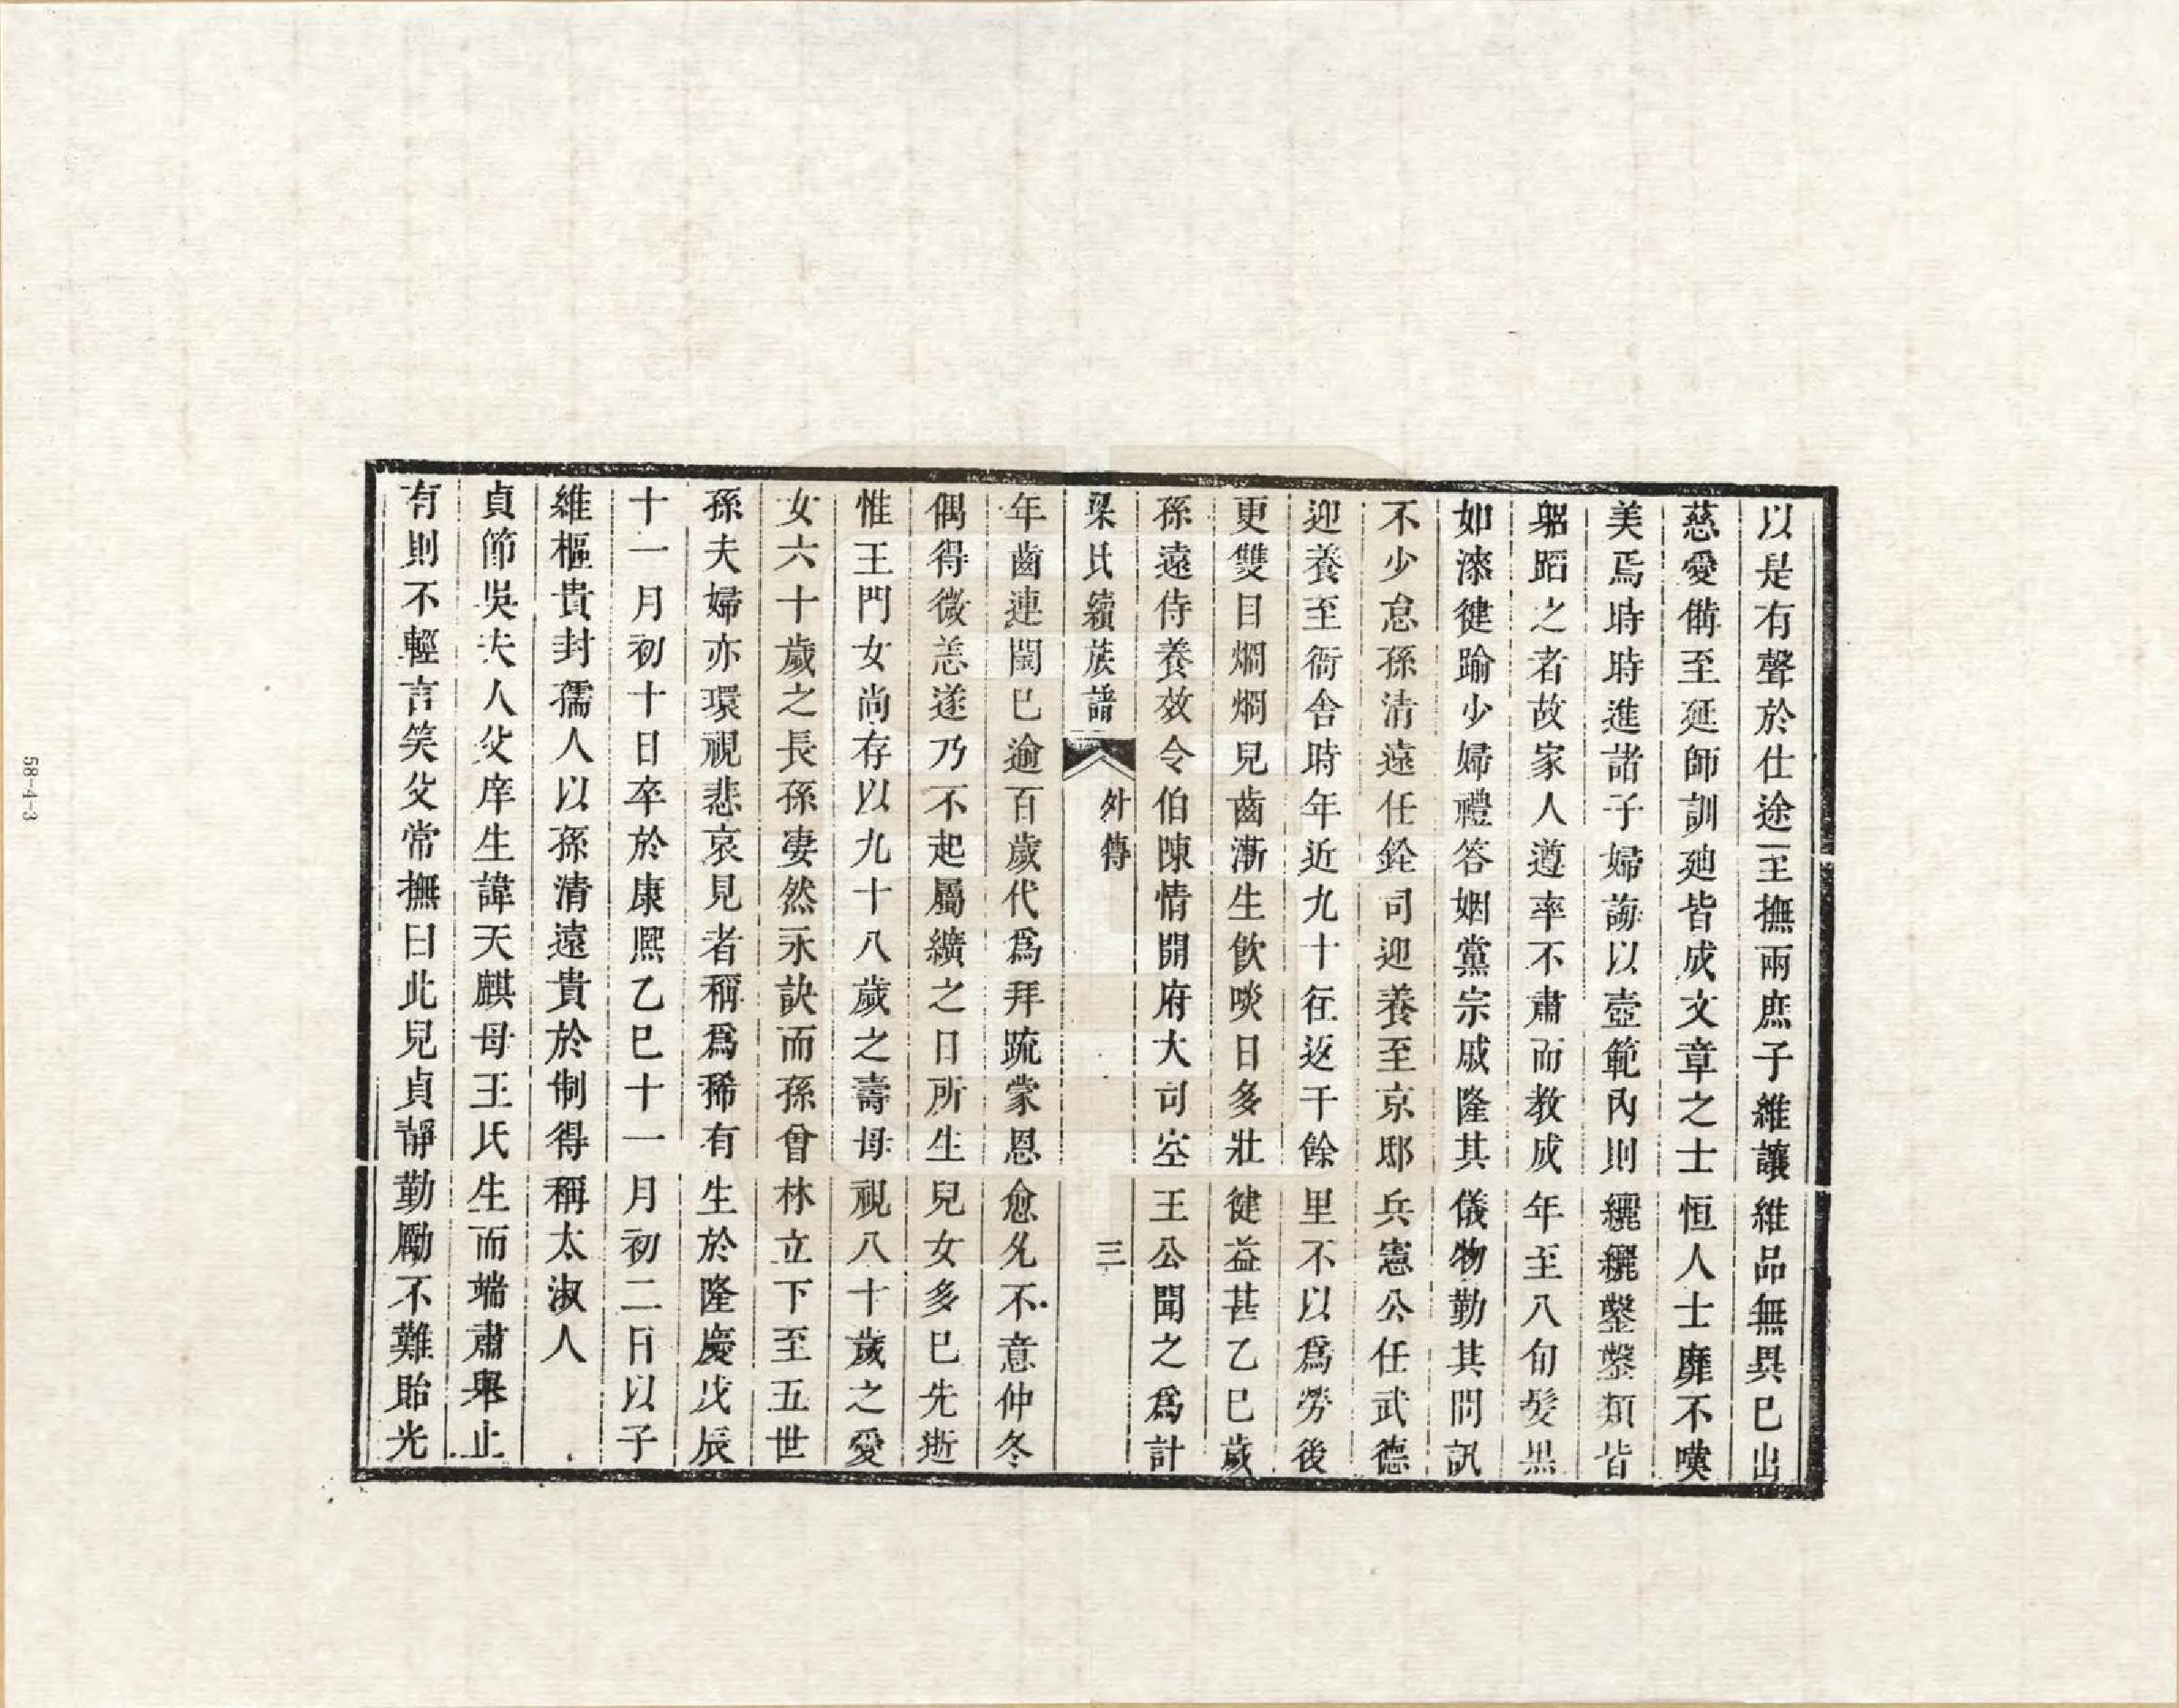 以是有聲於仕途至撫兩庶子維讓維品無異巳出
慈愛備至延師訓廸皆成文章之士恒人士靡不嘆
美焉時時進諸子婦誨以壼範內則纚纚鑿鑿類皆
躬蹈之者故家人遵率不肅而教成年至八旬髮黑
如漆健踰少婦禮答姻黨宗戚隆其儀物勤其問訊
不少怠孫清遠任銓司迎養至京邸兵憲公任武德
迎養至衙舍時年近九十徃返千餘里不以爲勞後
更雙目烱烱兒齒漸生飮啖日多壯健益甚乙巳歲
孫遠侍養效令伯陳情開府大司空王公聞之爲計
梁氏續族譜 外傳 三
年齒連閏巳逾百歲代爲拜疏蒙恩愈允不意仲冬
偶得微恙遂乃不起屬纊之日所生兒女多巳先逝
惟王門女尚存以九十八歲之壽母視八十歲之愛
女六十歲之長孫凄然永訣而孫曾林立下至五世
孫夫婦亦環視悲哀見者稱爲稀有生於隆慶戊辰
十一月初十日卒於康熙乙巳十一月初二日以子
維樞貴封孺人以孫清遠貴於制得稱太淑人
貞節吳夫人父庠生諱天麒母王氏生而端肅舉止
有則不輕言笑父常撫曰此兒貞靜勤勵不難貽光
58-4-3